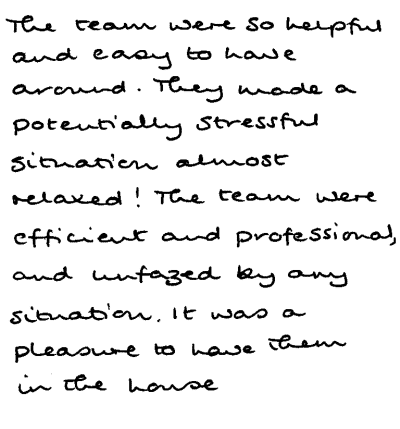 The team were so helpful
and easy to have
around. They made a
potentially stressful
situation almost
relaxed! The team were
efficient and professional,
and unfazed by any
situation. It was a
pleasure to have them
in the house